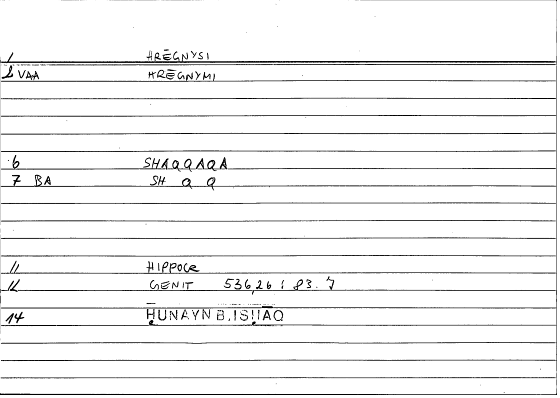 1 HRĒGNYSI
2 VAA HRĒGNYMI
6 SHAQQAQA
7 BA SH Q Q
11 HIPPOCR
12 GENIT 536,26 : 83.7
14 ḤUNAYN B.ISḤĀQ